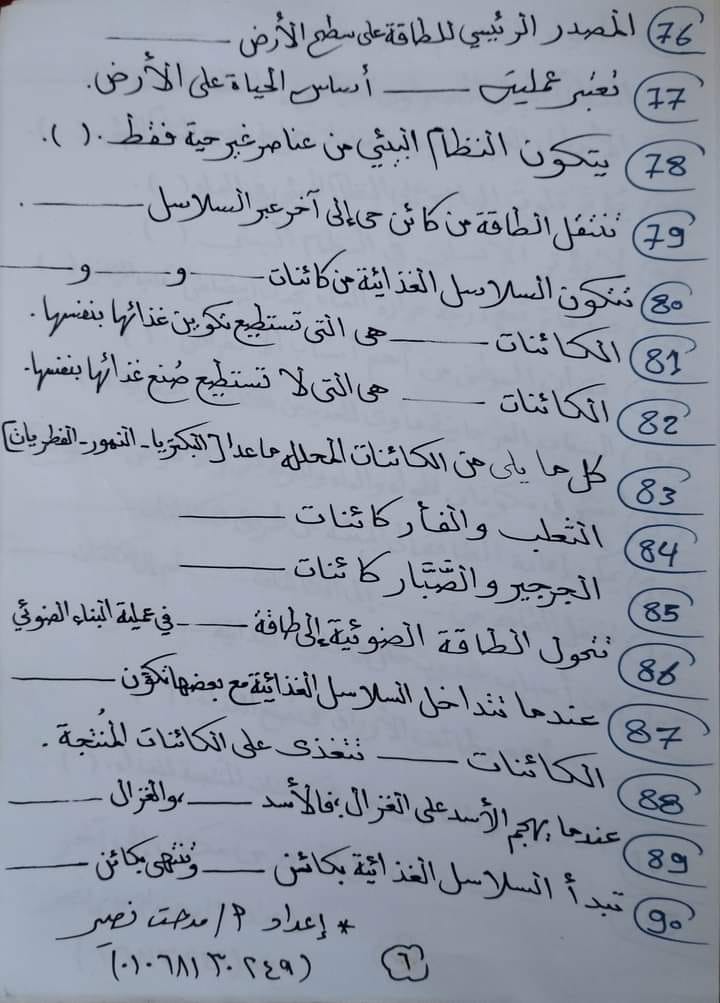 76 المصدر الرئيسي للطاقة على سطح الأرض ــــــــ
77 تعتبر عملية ــــــــ أساس الحياة على الأرض.
78 يتكون النظام البيئي من عناصر غير حية فقط. ( ).
79 تنتقل الطاقة من كائن حى إلى آخر عبر السلاسل ــــــــ.
80 تتكون السلاسل الغذائية من كائنات ــــــــ و ــــــــ و ــــــــ
81 الكائنات ــــــــ هى التى تستطيع تكوين غذائها بنفسها.
82 الكائنات ــــــــ هى التى لا تستطيع صُنع غذائها بنفسها.
83 كل ما يلى من الكائنات المحلله ما عدا [البكتريا - النمور - الفطريات]
84 الثعلب والفأر كائنات ــــــــ
85 الجرجير والصَّبَّار كائنات ــــــــ
86 تتحول الطاقة الضوئية إلى طاقة ــــــــ فى عملية البناء الضوئي
87 عندما تتداخل السلاسل الغذائية مع بعضها تكوّن ــــــــ
88 الكائنات ــــــــ تتغذى على الكائنات المُنتجة.
89 عندما يهجم الأسد على الغزال، فالأسد ــــــــ، والغزال ــــــــ
90 تبدأ السلاسل الغذائية بكائن ــــــــ وتنتهى بكائن ــــــــ
* إعداد م/ مدحت نصير
٦ (٠١٠٦٨١٣٠٢٤٩)